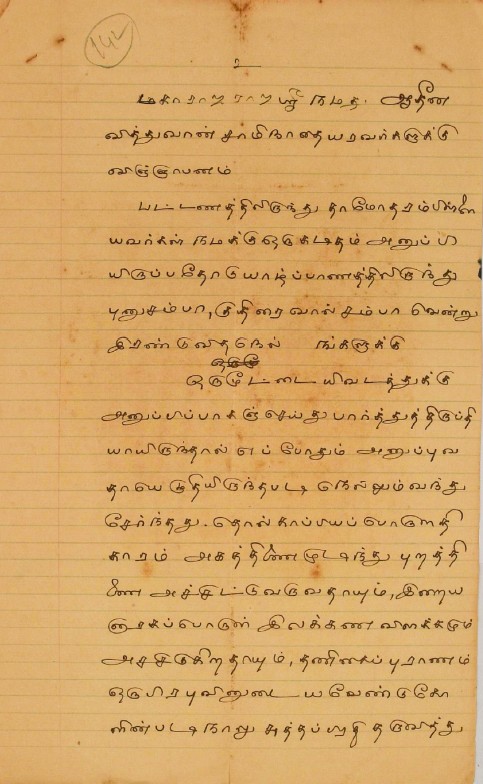 142
உ
மகாராஜ ராஜஸ்ரீ நமது ஆதீன
வித்துவான் சாமிநாதையரவர்களுக்கு
விஞ்ஞாபனம்
பட்டணத்திலிருந்து தாமோதரம்பிள்ளை
யவர்கள் நமக்கு ஒரு கடிதம் அனுப்பி
யிருப்பதோடு யாழ்ப்பாணத்திலிருந்து
புனுசம்பா, குதிரைவால்சம்பா வென்று
இரண்டுவிதநெல் நங்களுக்கு
ஒருமூட்டை யிவடத்துக்கு
அனுப்பிப்பாகஞ்செய்து பார்த்துத் திருப்தி
யாயிருந்தால் எப்போதும் அனுப்புவ
தாயெழுதியிருந்தபடி நெல்லும்வந்து
சேர்ந்தது. தொல்காப்பியப்பொருளதி
காரம் அகத்திணைமுடிந்து புறத்தி
ணை அச்சிட்டுவருவதாயும், இறைய
னாரகப்பொருள் இலக்கணவிளக்கமும்
அச்சிடுகிறதாயும், தணிகைப்புராணம்
ஒருபிரபுவினுடைய வேண்டுகோ
ளின்படி நாலு தருவித்து